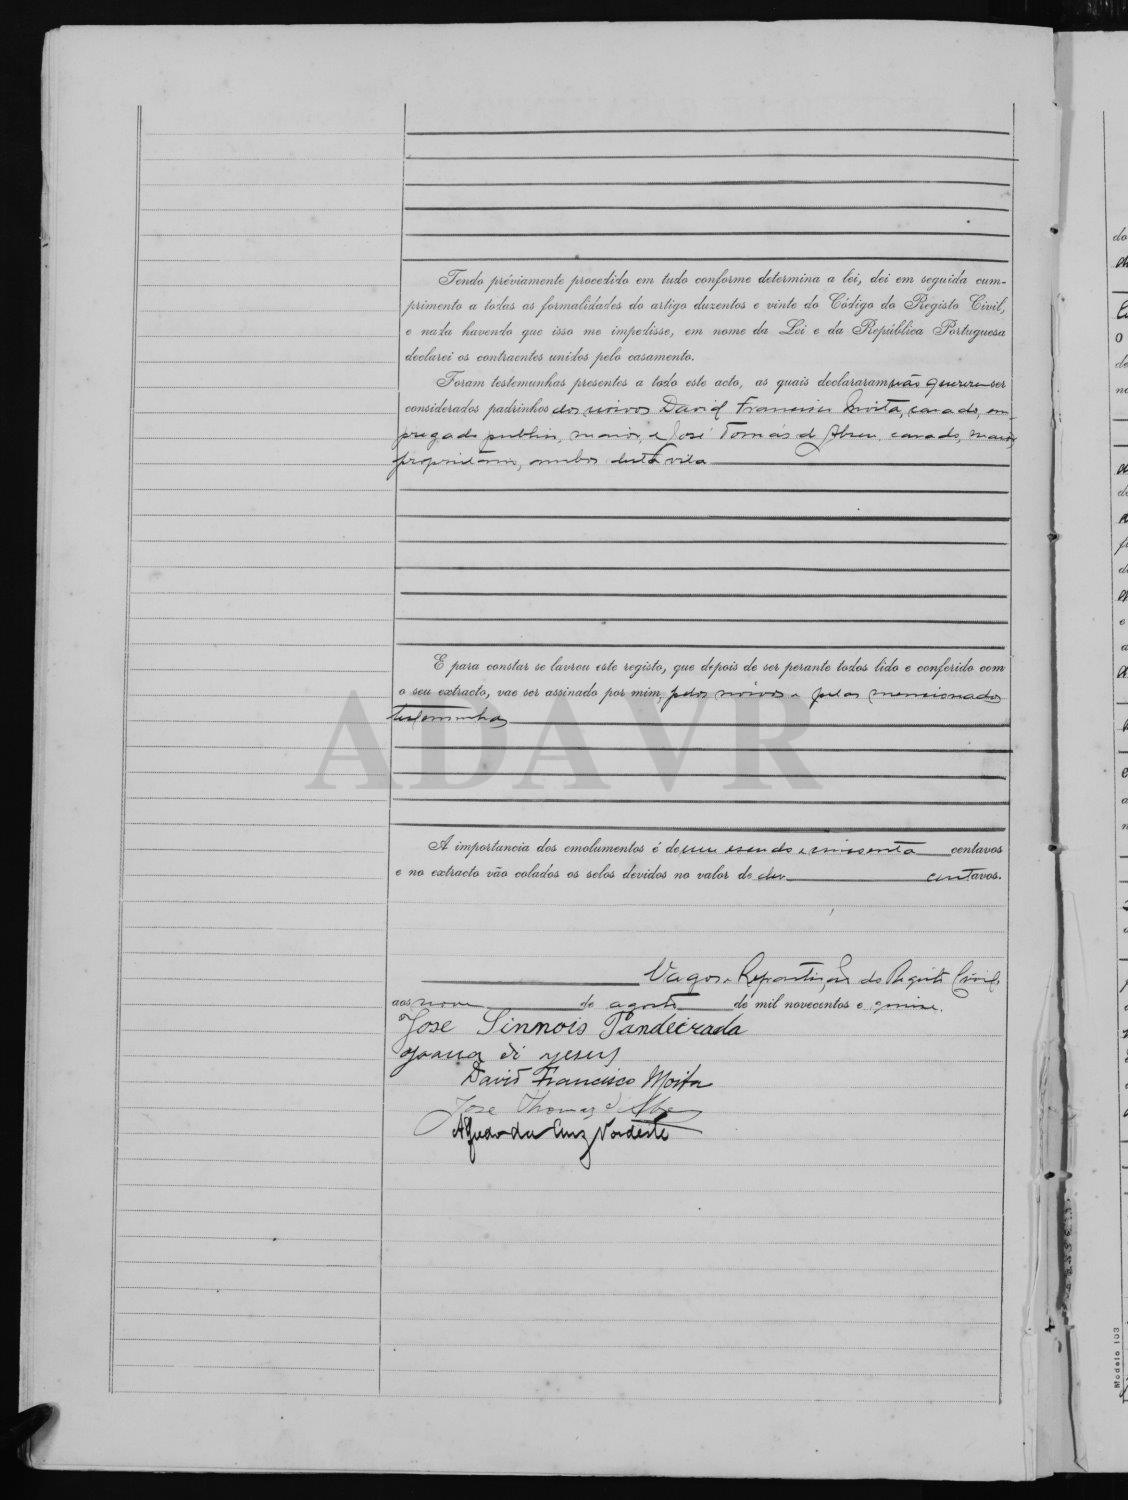 Tendo préviamente procedido em tudo conforme determina a lei, dei em seguida cum-
primento a todas as formalidades do artigo duzentos e vinte do Código do Registo Civil,
e nada havendo que isso me impedisse, em nome da Lei e da República Portuguesa
declarei os contraentes unidos pelo casamento.
Foram testemunhas presentes a todo este acto, as quais declararam não querer ser
considerados padrinhos dos noivos David Francisco Moita, casado, em-
pregado publico, maior, e José Tomás d'Abreu, casado, maior,
proprietario, ambos desta vila
E para constar se lavrou este registo, que depois de ser perante todos lido e conferido com
o seu extracto, vae ser assinado por mim, pelos noivos e pelas mencionadas
testemunhas
ADAVR
A importancia dos emolumentos é de um escudo e cincoenta centavos
e no extracto vão colados os selos devidos no valor de dez centavos.
Vagos e Repartição do Registo Civil,
aos nove de agosto de mil novecentos e quinze.
Jose Sinnois Pandeirada
Joana di Jesus
David Francisco Moita
Jose Thomaz d'Abreu
da Cruz
Modelo 103